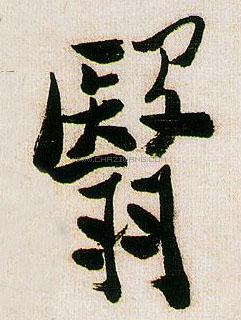 翳
WWW.CHAZIDIAN.COM